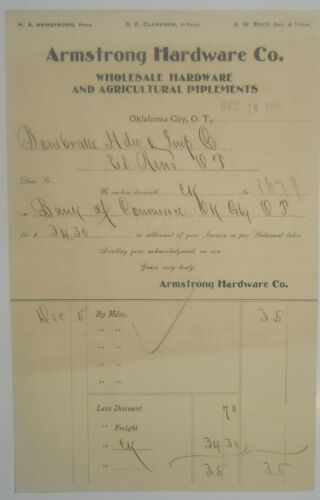 H. A. ARMSTRONG, PRES. S. E. CLARKSON, V-PRES. A. W. BOYD, SEC. & TREAS.
Armstrong Hardware Co.
WHOLESALE HARDWARE
AND AGRICULTURAL IMPLEMENTS
DEC 14 1901
Oklahoma City, O. T.,
Hdw & Imp Co
El Reno O T
Dear Sir,
We enclose herewith CK No 1679
on Bank of Commerce Ok City O T
for $ 34.30 in settlement of your Invoice as per Statement below.
Awaiting your acknowledgment, we are
Yours very truly,
Armstrong Hardware Co.
Dec 5 By Mdse. 35
" "
" "
" "
" "
Less Discount 70
" Freight
" CK 34 30
35 35